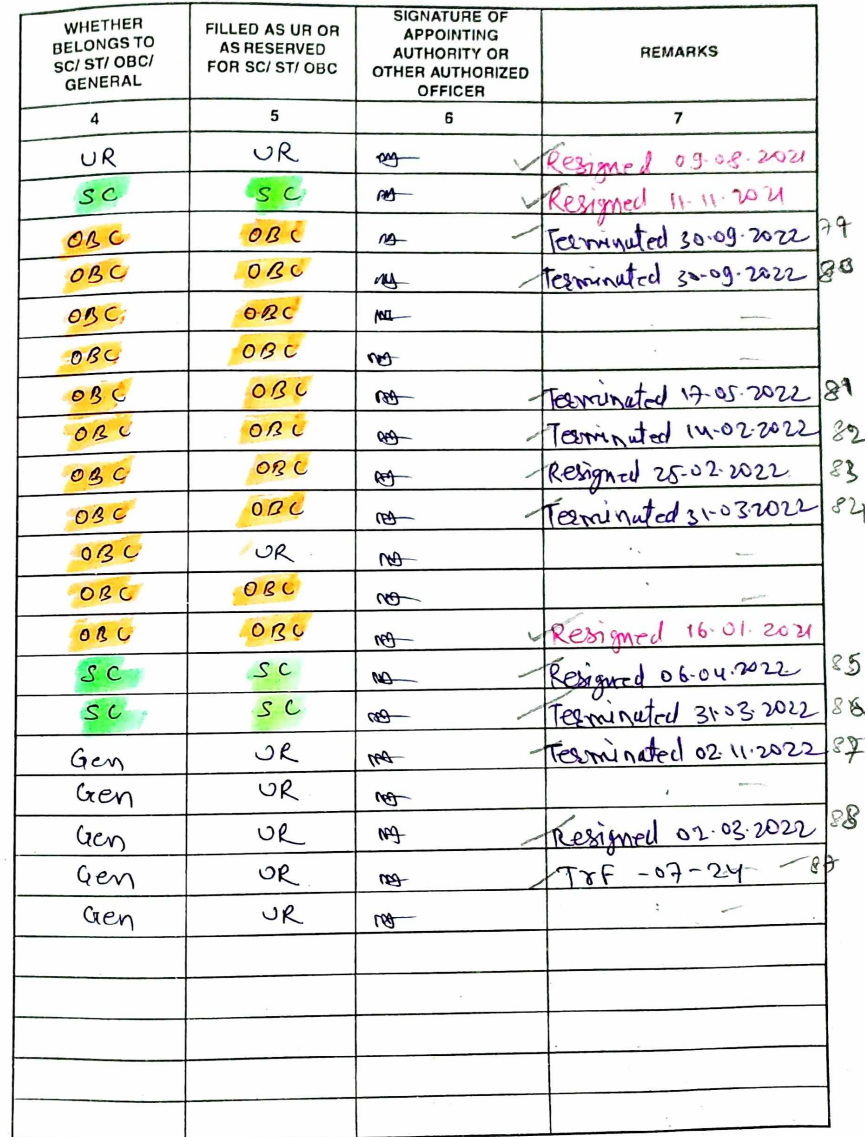 WHETHER BELONGS TO SC/ ST/ OBC/ GENERAL FILLED AS UR OR AS RESERVED FOR SC/ ST/ OBC SIGNATURE OF APPOINTING AUTHORITY OR OTHER AUTHORIZED OFFICER REMARKS
4 5 6 7
UR UR Resigned 09.08.2021
SC SC Resigned 11.11.2021
OBC OBC Terminated 30.09.2022 79
OBC OBC Terminated 30.09.2022 80
OBC OBC —
OBC OBC —
OBC OBC Terminated 17.05.2022 81
OBC OBC Terminated 14.02.2022 82
OBC OBC Resigned 25.02.2022 83
OBC OBC Terminated 31.03.2022 84
OBC UR —
OBC OBC —
OBC OBC Resigned 16.01.2021
SC SC Resigned 06.04.2022 85
SC SC Terminated 31.03.2022 86
Gen UR Terminated 02.11.2022 87
Gen UR —
Gen UR Resigned 02.03.2022 88
Gen UR TrF -07-24
Gen UR —